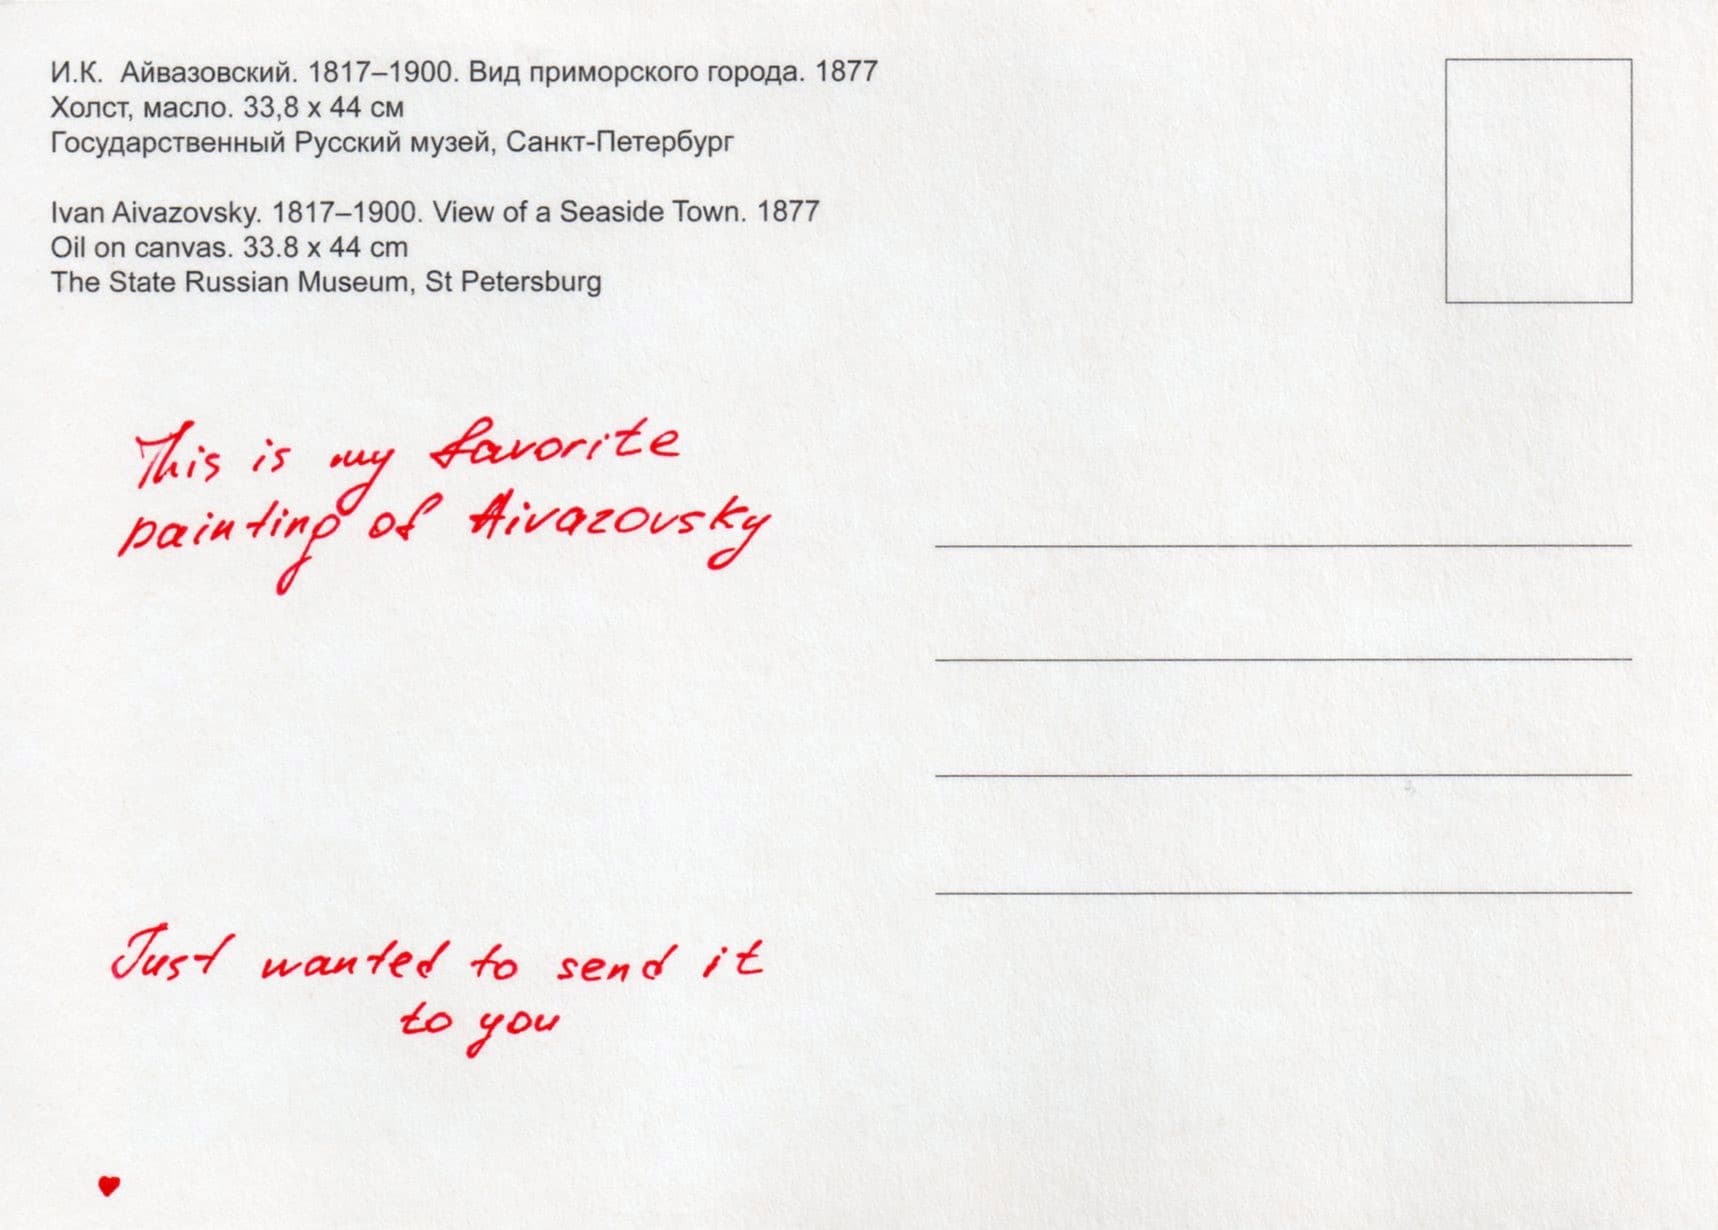 И.К. Айвазовский. 1817–1900. Вид приморского города. 1877
Холст, масло. 33,8 x 44 см
Государственный Русский музей, Санкт-Петербург
Ivan Aivazovsky. 1817–1900. View of a Seaside Town. 1877
Oil on canvas. 33.8 x 44 cm
The State Russian Museum, St Petersburg
This is my favorite
painting of Aivazovsky
Just wanted to send it
to you